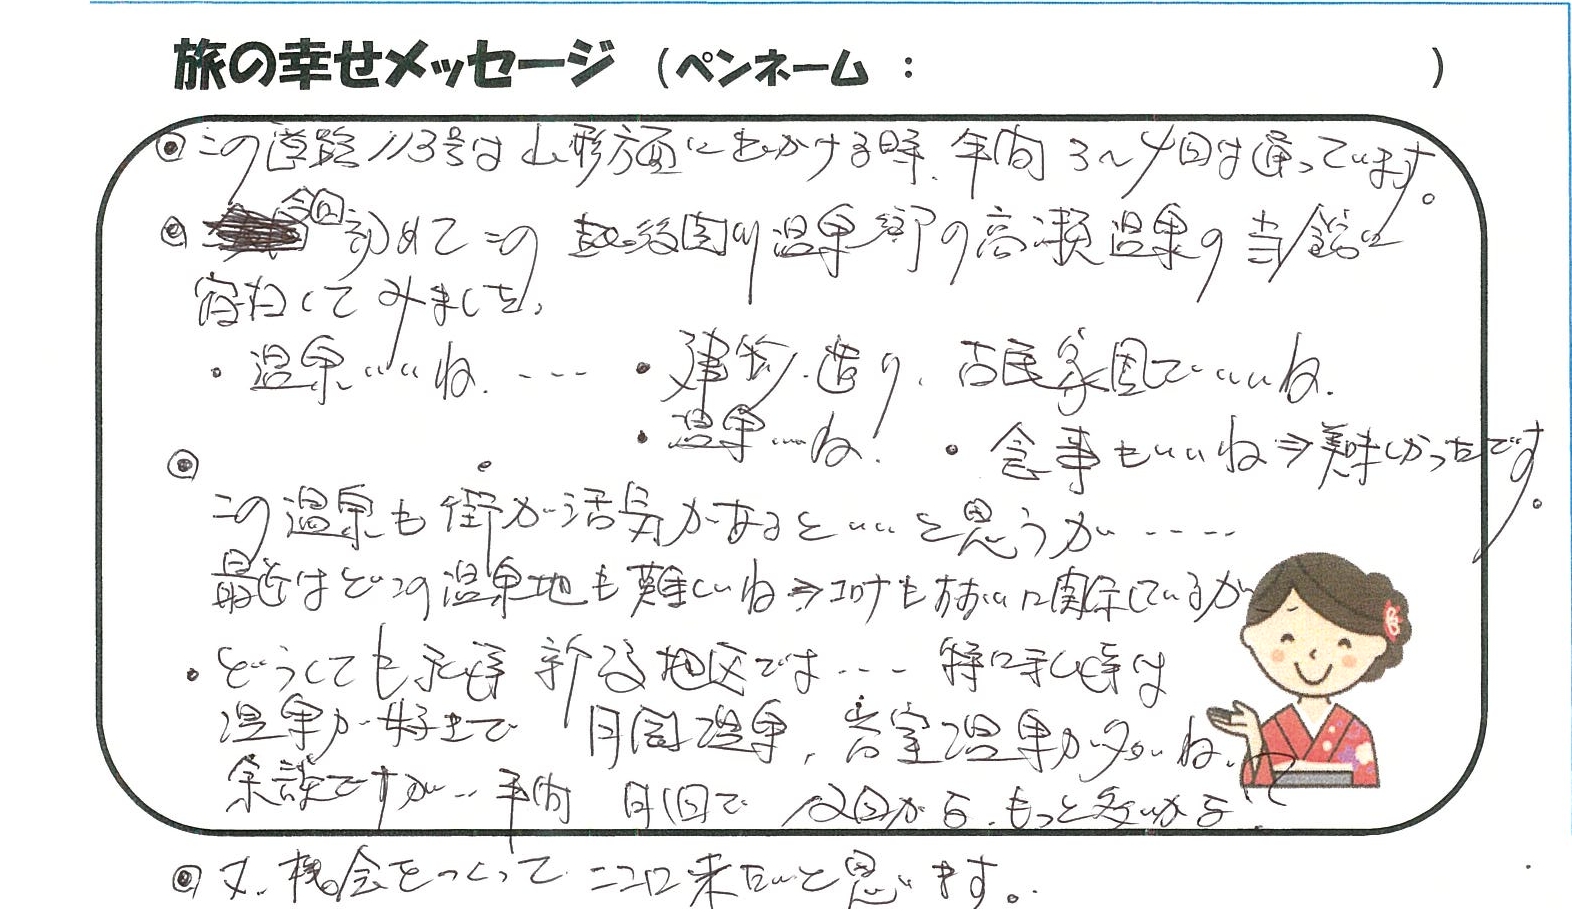 旅の幸せメッセージ (ペンネーム : )
◎この道路113号は山形方面に出かける時、年間3~4回は通っています。
◎今回初めてこの越後関川温泉郷の高瀬温泉の当館に
宿泊してみました。
・温泉いいね.… ・建物.造り、古民家風でいいね.
・温泉いいね! ・食事もいいね⇒美味しかったです。
◎
この温泉も街が活気があるといいと思うが……
最近はどこの温泉地も難しいね⇒コロナも大いに関係しているが
・どうしても 地区では… 特に私等は
温泉が好きで 月岡温泉、岩室温泉が多いね.
余談ですが… 年間 月1回で 12回かな.もっと多いかな!?
◎又、機会をつくって ここに来たいと思います。